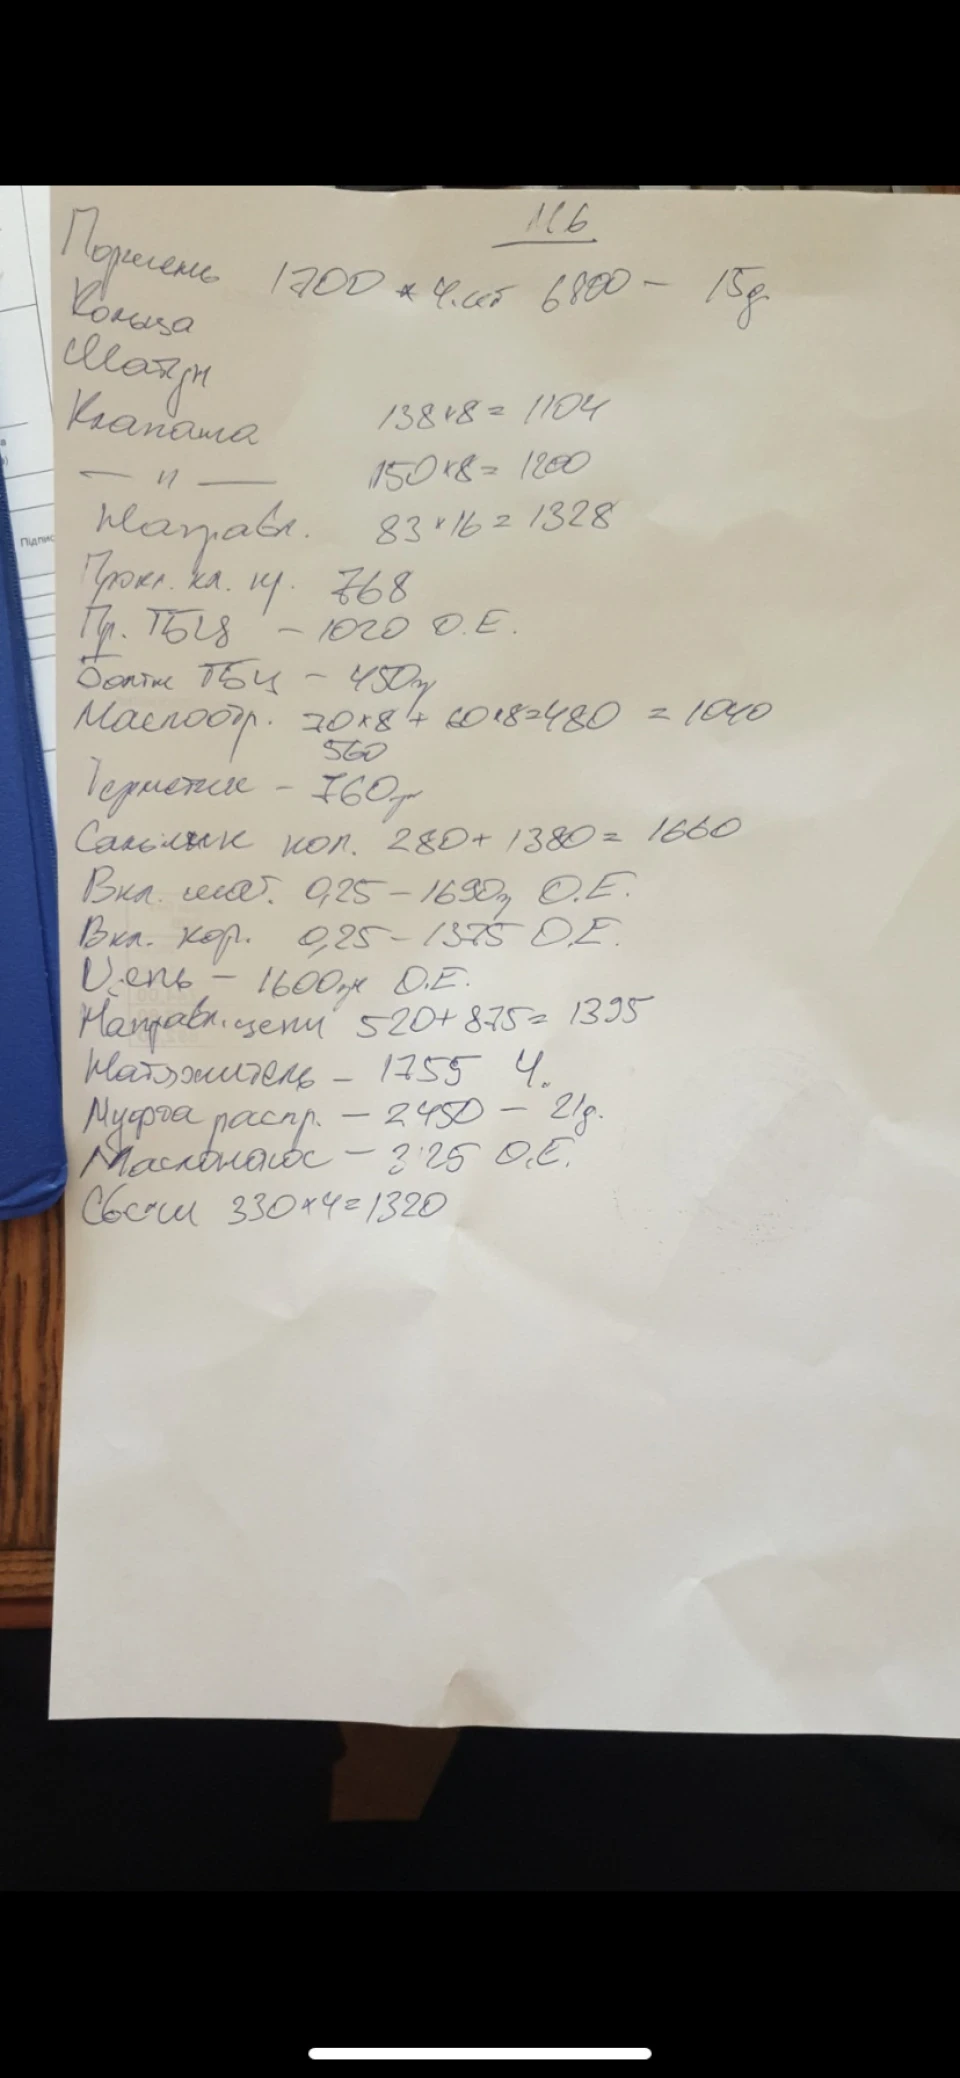 М6
Поршень
1700 * 4 шт 6800 - 15д.
Кольца
Шатун
Клапана 138*8= 1104
— и — 150*8= 1200
Направл. 83*16= 1328
Прокл. кл. кр. 768
Пр. ГБЦ - 1020 О.Е.
Болты ГБЦ - 450гр
Маслоотр. 70*8 + 60*8=480 = 1040
560
Герметик - 760гр
Сальник кол. 280+ 1380= 1660
Вкл. шат. 0,25 - 1690гр О.Е.
Вкл. кор. 0,25 - 1375 О.Е.
Цепь - 1600гр О.Е.
Направл. цепи 520+ 875= 1395
Натяжитель - 1755 Ч.
Муфта распр. - 2450 - 21д.
Маслонасос - О.Е.
Свечи 330*4=1320
Підпис